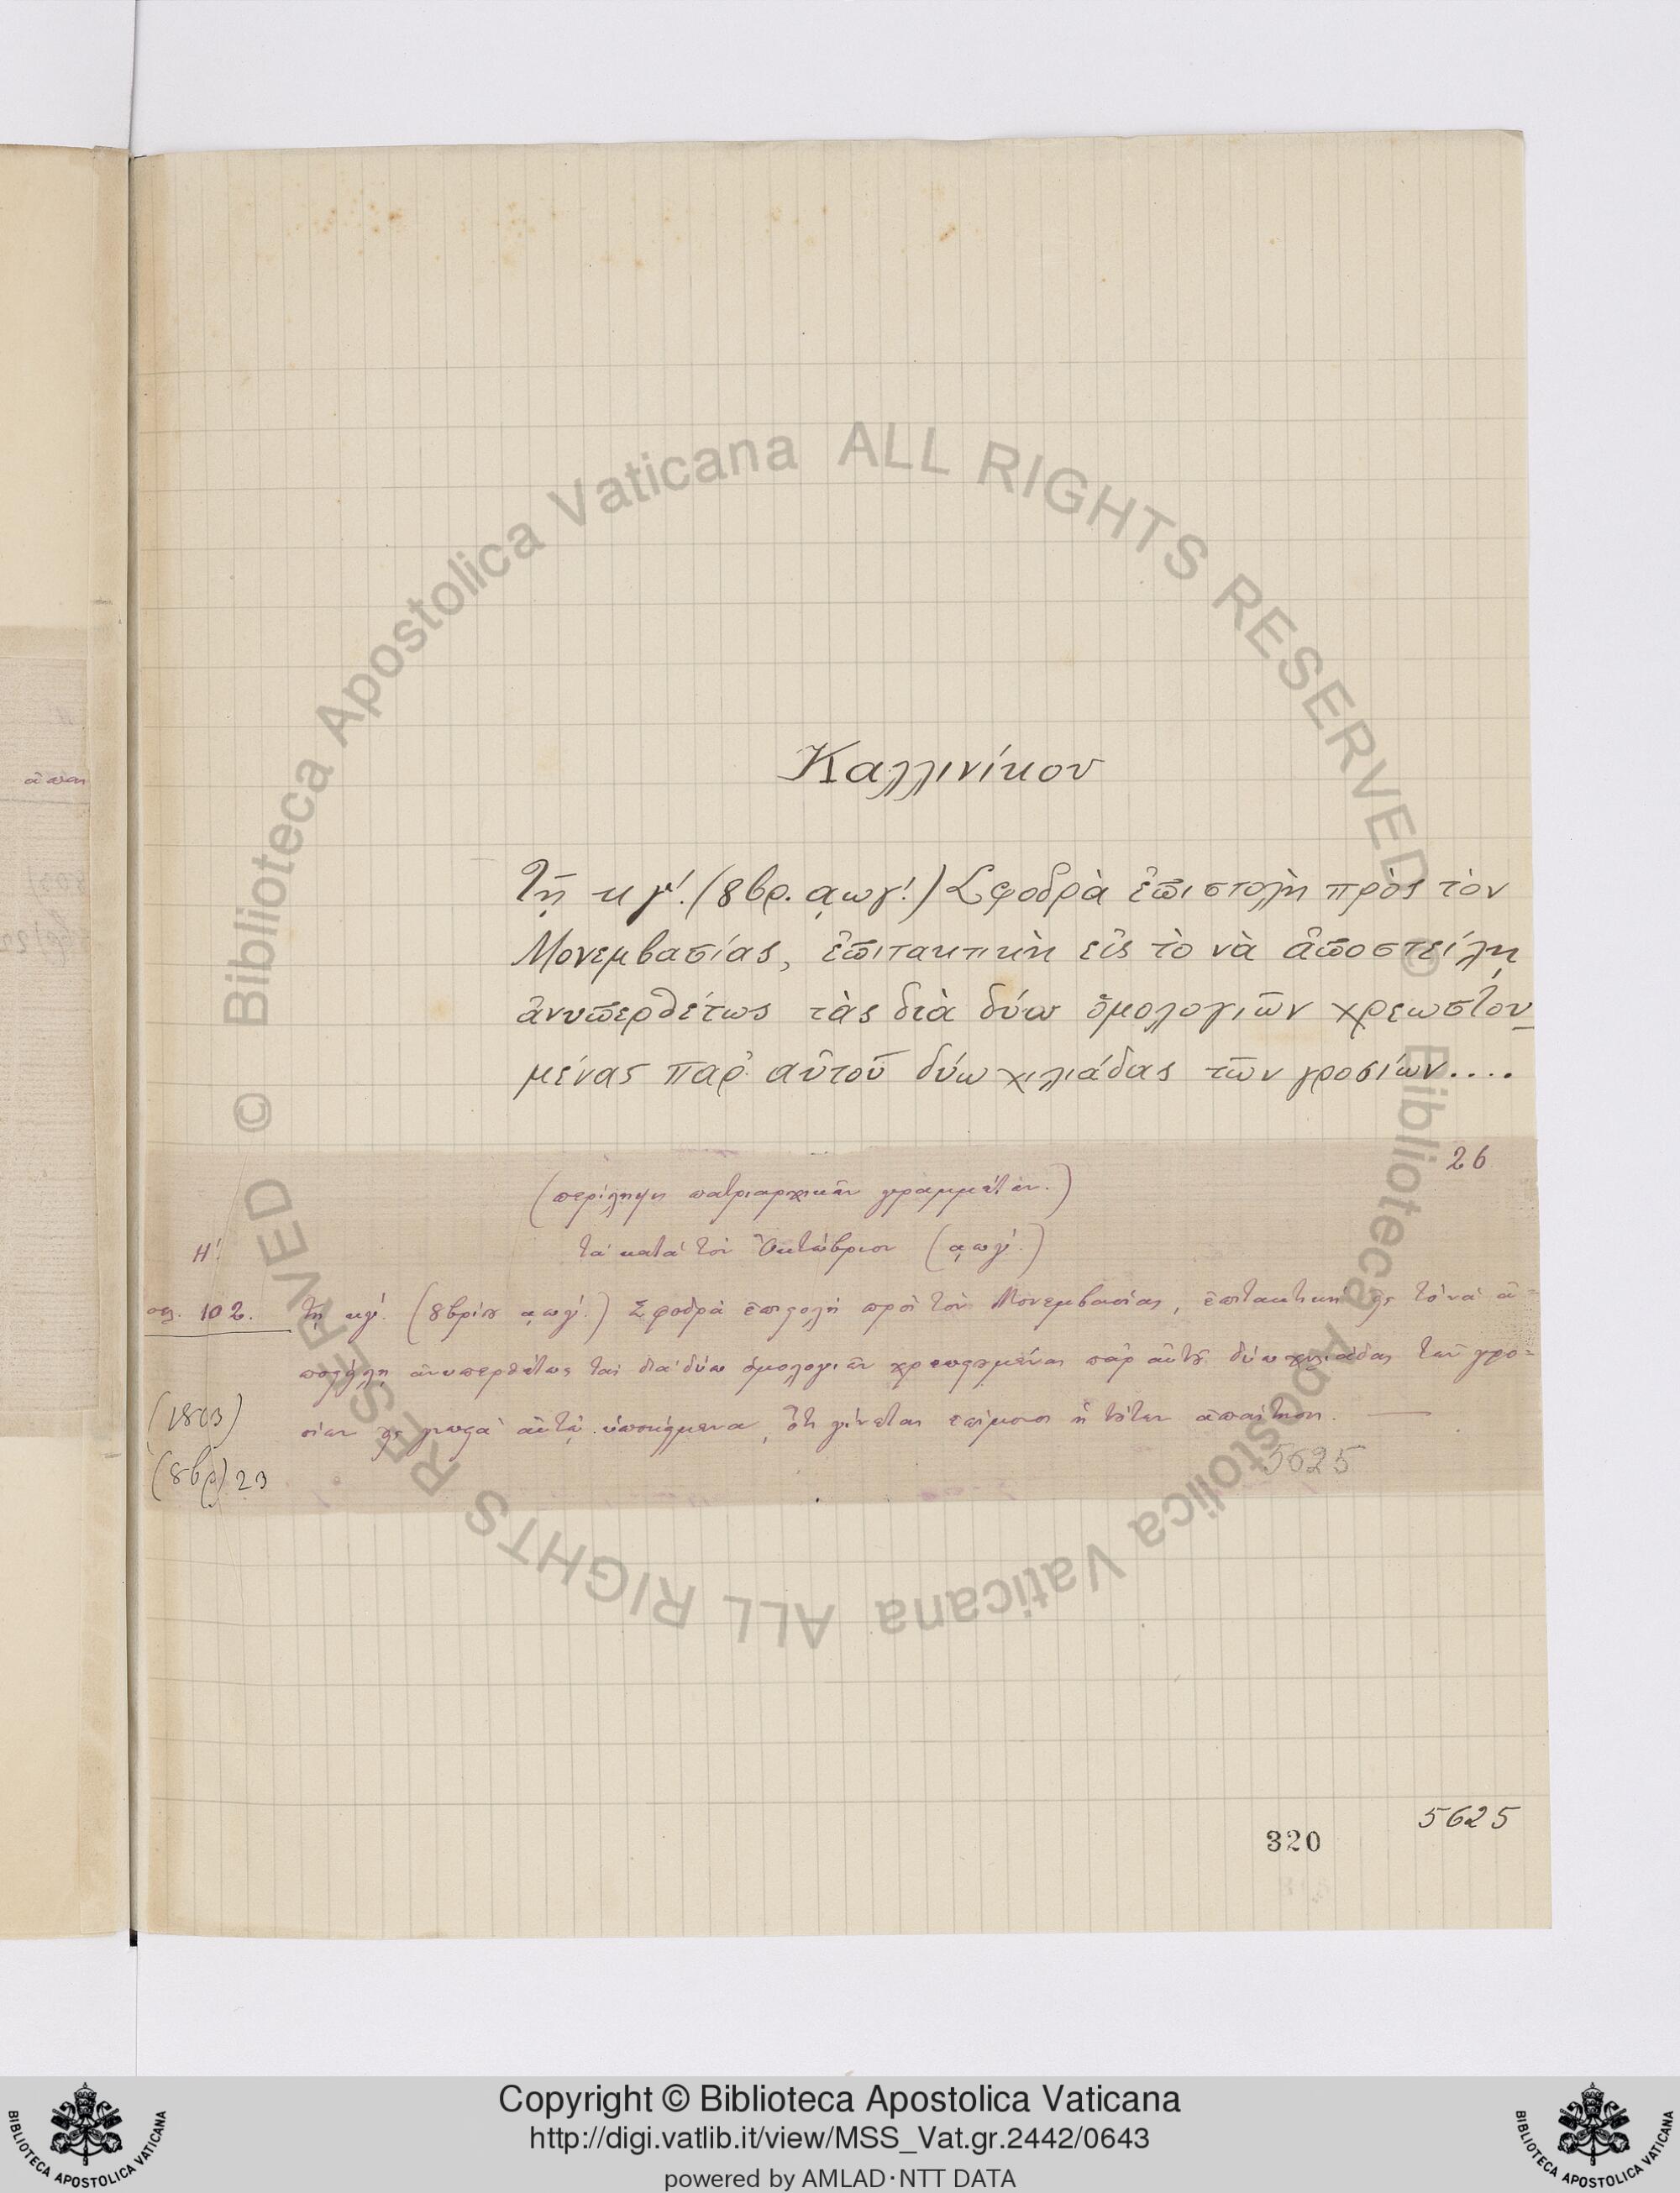 Καλλινίκου
Τῇ κγ΄. (8βρ. ͵αωγ΄.) Σφοδρὰ ἐπιστολὴ πρὸς τὸν
Μονεμβασίας, ἐπιτακτικὴ εἰς τὸ νὰ ἀποστείλῃ
ἀνυπερθέτως τὰς διὰ δύω ὁμολογιῶν χρεωστου-
μένας παρ' αὐτοῦ δύω χιλιάδας τῶν γροσίων....
26
(περίληψις πατριαρχικῶν γραμμάτων.)
Η΄. τὰ κατὰ τὸν Ὀκτώβριον (͵αωγ΄.)
σελ. 102. τῇ κγ΄. (8βρίου ͵αωγ΄.) Σφοδρὰ ἐπιστολὴ πρὸς τὸν Μονεμβασίας, ἐπιτακτικὴ εἰς τὸ νὰ ἀ-
ποστείλῃ ἀνυπερθέτως τὰς διὰ δύω ὁμολογιῶν χρεωστουμένας παρ' αὐτοῦ δύω χιλιάδας τῶν γρο-
σίων εἰς γνωστὰ αὐτῷ ὑποκείμενα, ὅτι γίνεται ἡ τούτων ἀπαίτησις.
(1803)
(8βρ) 23
5625
5625
320
Copyright © Biblioteca Apostolica Vaticana
http://digi.vatlib.it/view/MSS_Vat.gr.2442/0643
powered by AMLAD·NTT DATA
© Biblioteca Apostolica Vaticana ALL RIGHTS RESERVED
© Biblioteca Apostolica Vaticana ALL RIGHTS RESERVED
BIBLIOTECA APOSTOLICA VATICANA
BIBLIOTECA APOSTOLICA VATICANA